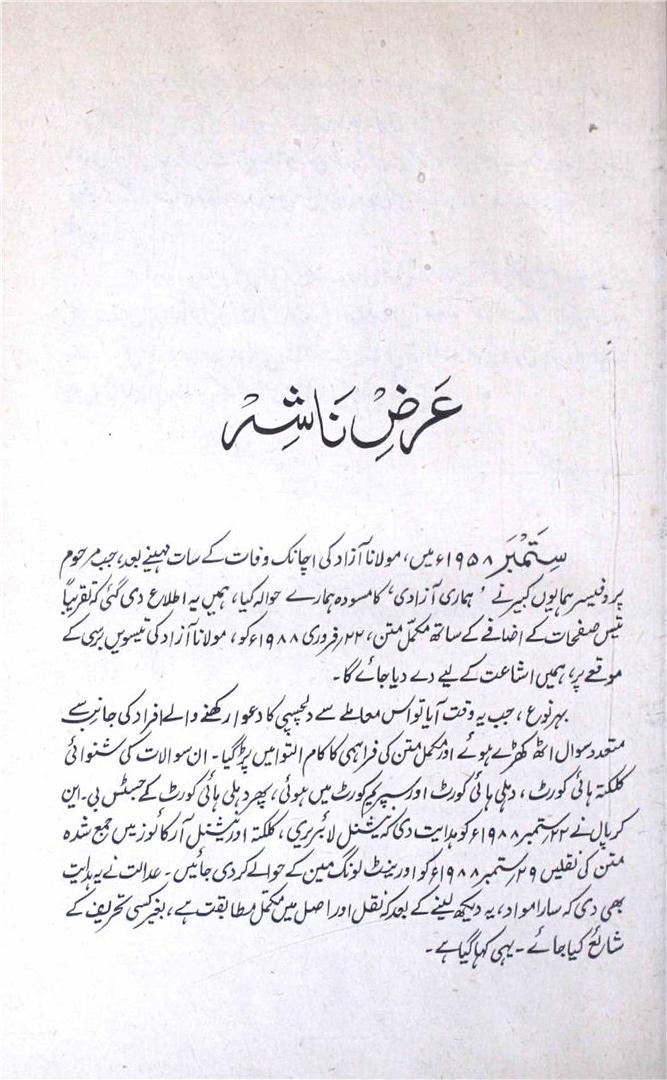 عَرضِ نَاشِر
سِتَمْبَر ۱۹۵۸ء میں، مولانا آزاد کی اچانک وفات کے سات مہینے بعد، جب مرحوم
پروفیسر ہمایوں کبیر نے ’ہماری آزادی‘ کا مسودہ ہمارے حوالہ کیا، ہمیں یہ اطلاع دی گئی کہ تقریباً
تیس صفحات کے اضافے کے ساتھ مکمّل متن، ۲۲؍ فروری ۱۹۸۸ء کو، مولانا آزاد کی تیسویں برسی کے
موقعے پر، ہمیں اشاعت کے لیے دے دیا جائے گا۔
بہر نوع، جب یہ وقت آیا تو اس معاملے سے دلچسپی کا دعوا رکھنے والے افراد کی جانب سے
متعدد سوال اٹھ کھڑے ہوئے اور مکمل متن کی فراہمی کا کام التوا میں پڑ گیا۔ ان سوالات کی شنوائی
کلکتہ ہائی کورٹ، دہلی ہائی کورٹ اور سپریم کورٹ میں ہوئی، پھر دہلی ہائی کورٹ کے جسٹس بی۔ این
کرپال نے ۲۲؍ ستمبر ۱۹۸۸ء کو ہدایت دی کہ نیشنل لائبریری، کلکتہ اور نیشنل آرکائوز میں جمع شدہ
متن کی نقلیں ۲۹؍ ستمبر ۱۹۸۸ء کو اورینٹ لونگ مین کے حوالے کر دی جائیں۔ عدالت نے یہ ہدایت
بھی دی کہ سارا مواد، یہ دیکھ لینے کے بعد کہ نقل اور اصل میں مکمّل مطابقت ہے، بغیر کسی تحریف کے
شائع کیا جائے۔ یہی کہا گیا ہے۔